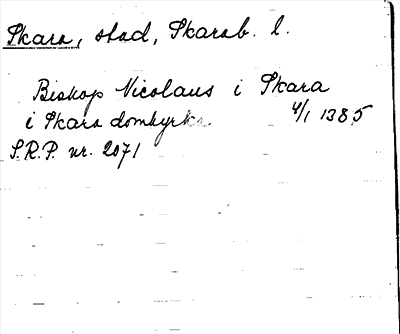 Skara, stad, Skarab. l.
Biskop Nicolaus i Skara
i Skara domkyrka 4/1 1385
S.R.P. nr. 2071